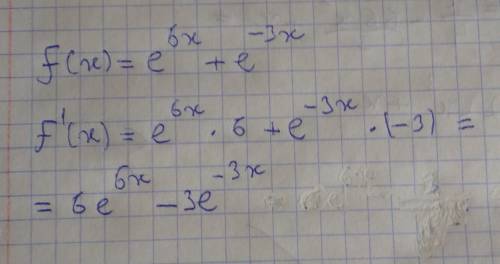 f(x) = e^{6x} + e^{-3x}
f'(x) = e^{6x} · 6 + e^{-3x} · (-3) =
= 6e^{6x} - 3e^{-3x}